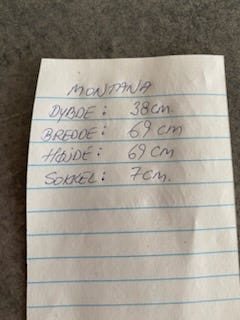 MONTANA
DYBDE: 38cm
BREDDE: 69 cm
HØJDE: 69 cm
SOKKEL: 7cm.